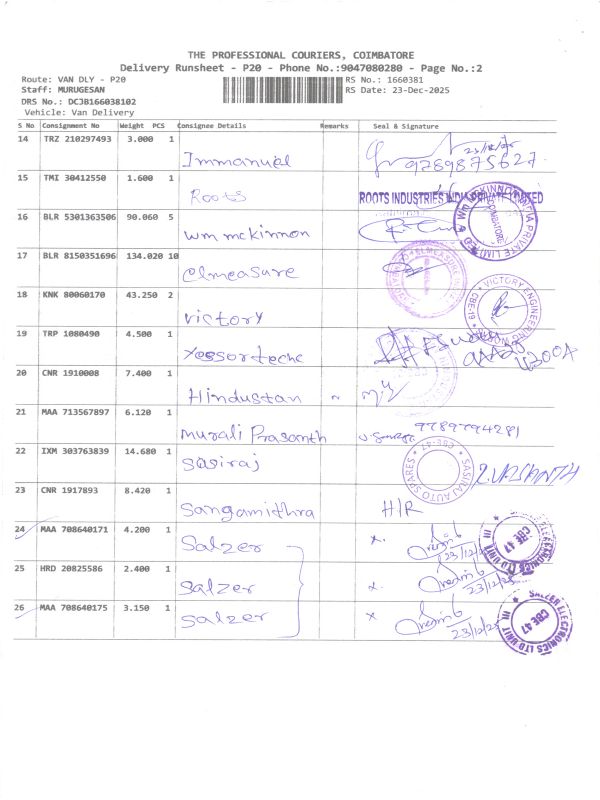 THE PROFESSIONAL COURIERS, COIMBATORE
Delivery Runsheet - P20 - Phone No.:9047080280 - Page No.:2
Route: VAN DLY - P20 RS No.: 1660381
Staff: MURUGESAN RS Date: 23-Dec-2025
DRS No.: DCJB166038102
Vehicle: Van Delivery
S No Consignment No Weight PCS Consignee Details Remarks Seal & Signature
14 TRZ 210297493 3.000 1 Immanuel 9789875627
15 TMI 30412550 1.600 1 Roots ROOTS INDUSTRIES INDIA PRIVATE LIMITED
16 BLR 5301363506 90.060 5 Wm mckinnon
17 BLR 8150351696 134.020 10 elmeasure
18 KNK 80060170 43.250 2 victory VICTORY ENGINEERING WORKS CBE-19
19 TRP 1080490 4.500 1
20 CNR 1910008 7.400 1 Hindustan
21 MAA 713567897 6.120 1 Murali Prasanth 9789794281
22 IXM 303763839 14.680 1 Sasiraj SASIRAJ AUTO SPARES CBE-47
23 CNR 1917893 8.420 1 Sangamithra H/R
24 MAA 708640171 4.200 1 Salzer x. 23/12/25 CBE 47
25 HRD 20825586 2.400 1 Salzer x. 23/12/25
26 MAA 708640175 3.150 1 Salzer x 23/12/25 SALZER ELECTRONICS LTD UNIT III CBE 47